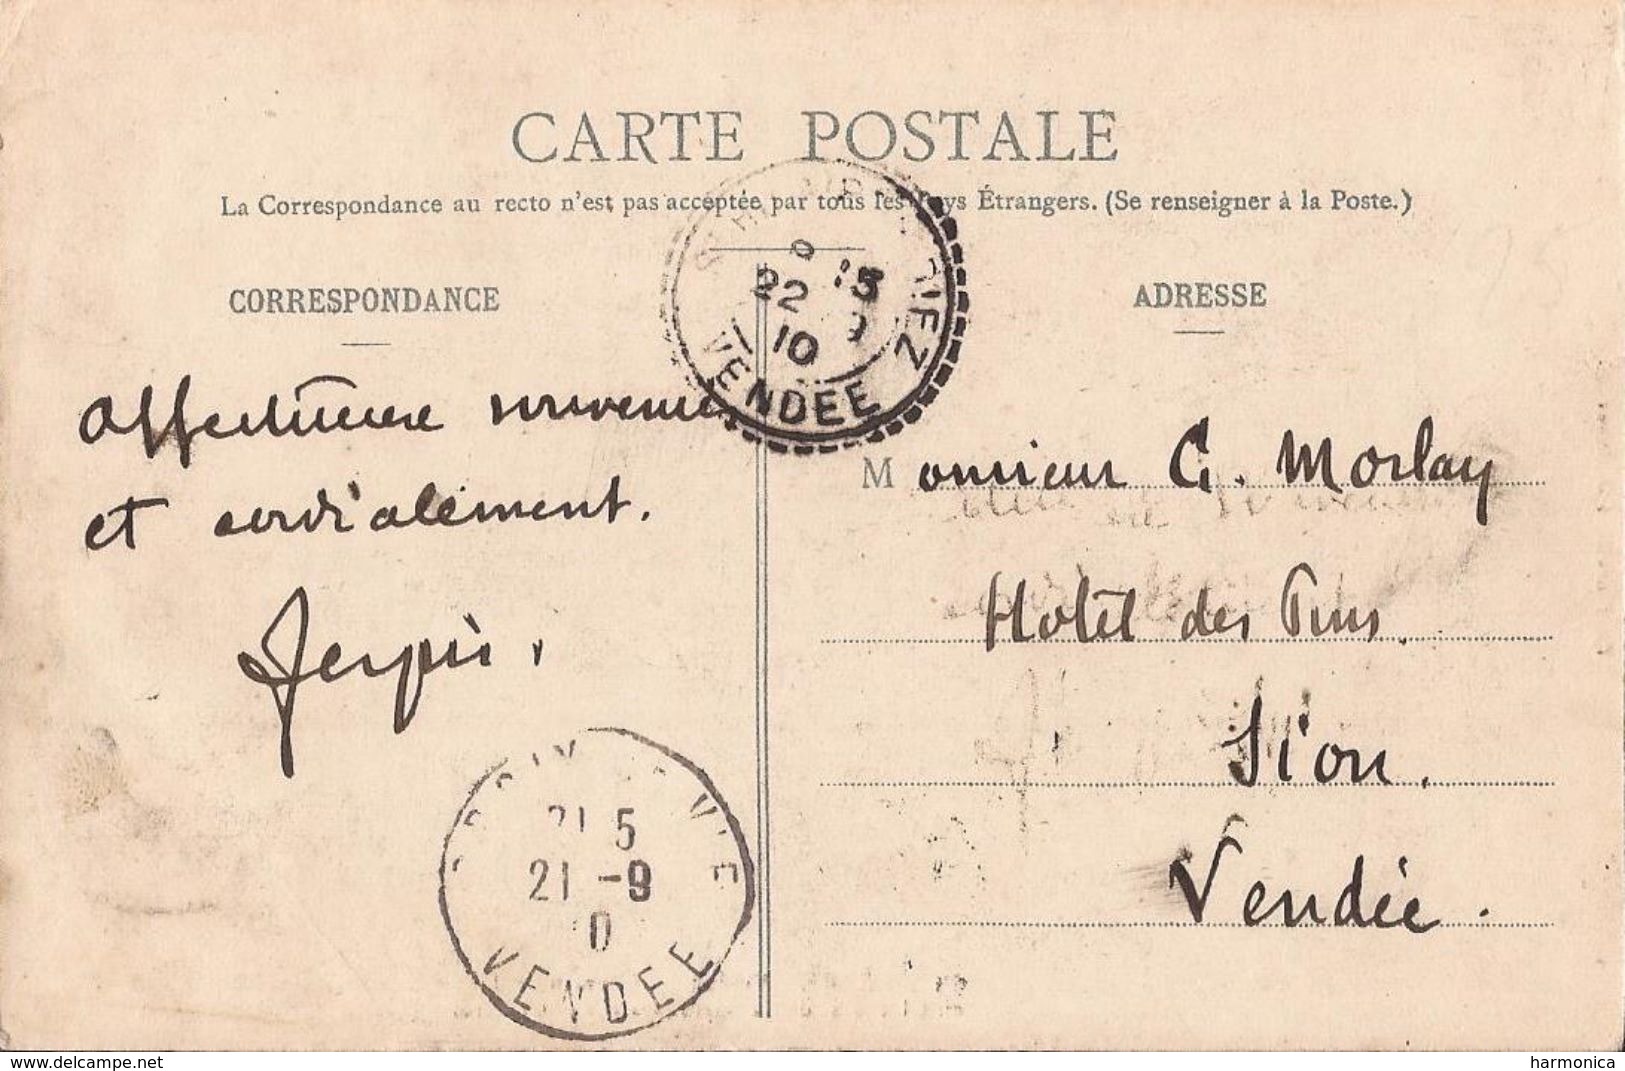 CARTE POSTALE
La Correspondance au recto n'est pas acceptée par tous les Pays Étrangers. (Se renseigner à la Poste.)
CORRESPONDANCE
ADRESSE
15
22 9
10
VENDÉE
Affectueux souvenir
et cordialement.
Monsieur G. Morlay
Hotel des Pins.
Sion.
Vendée.
VIE
21 5
21 -9
10
VENDEE
www.delcampe.net
harmonica